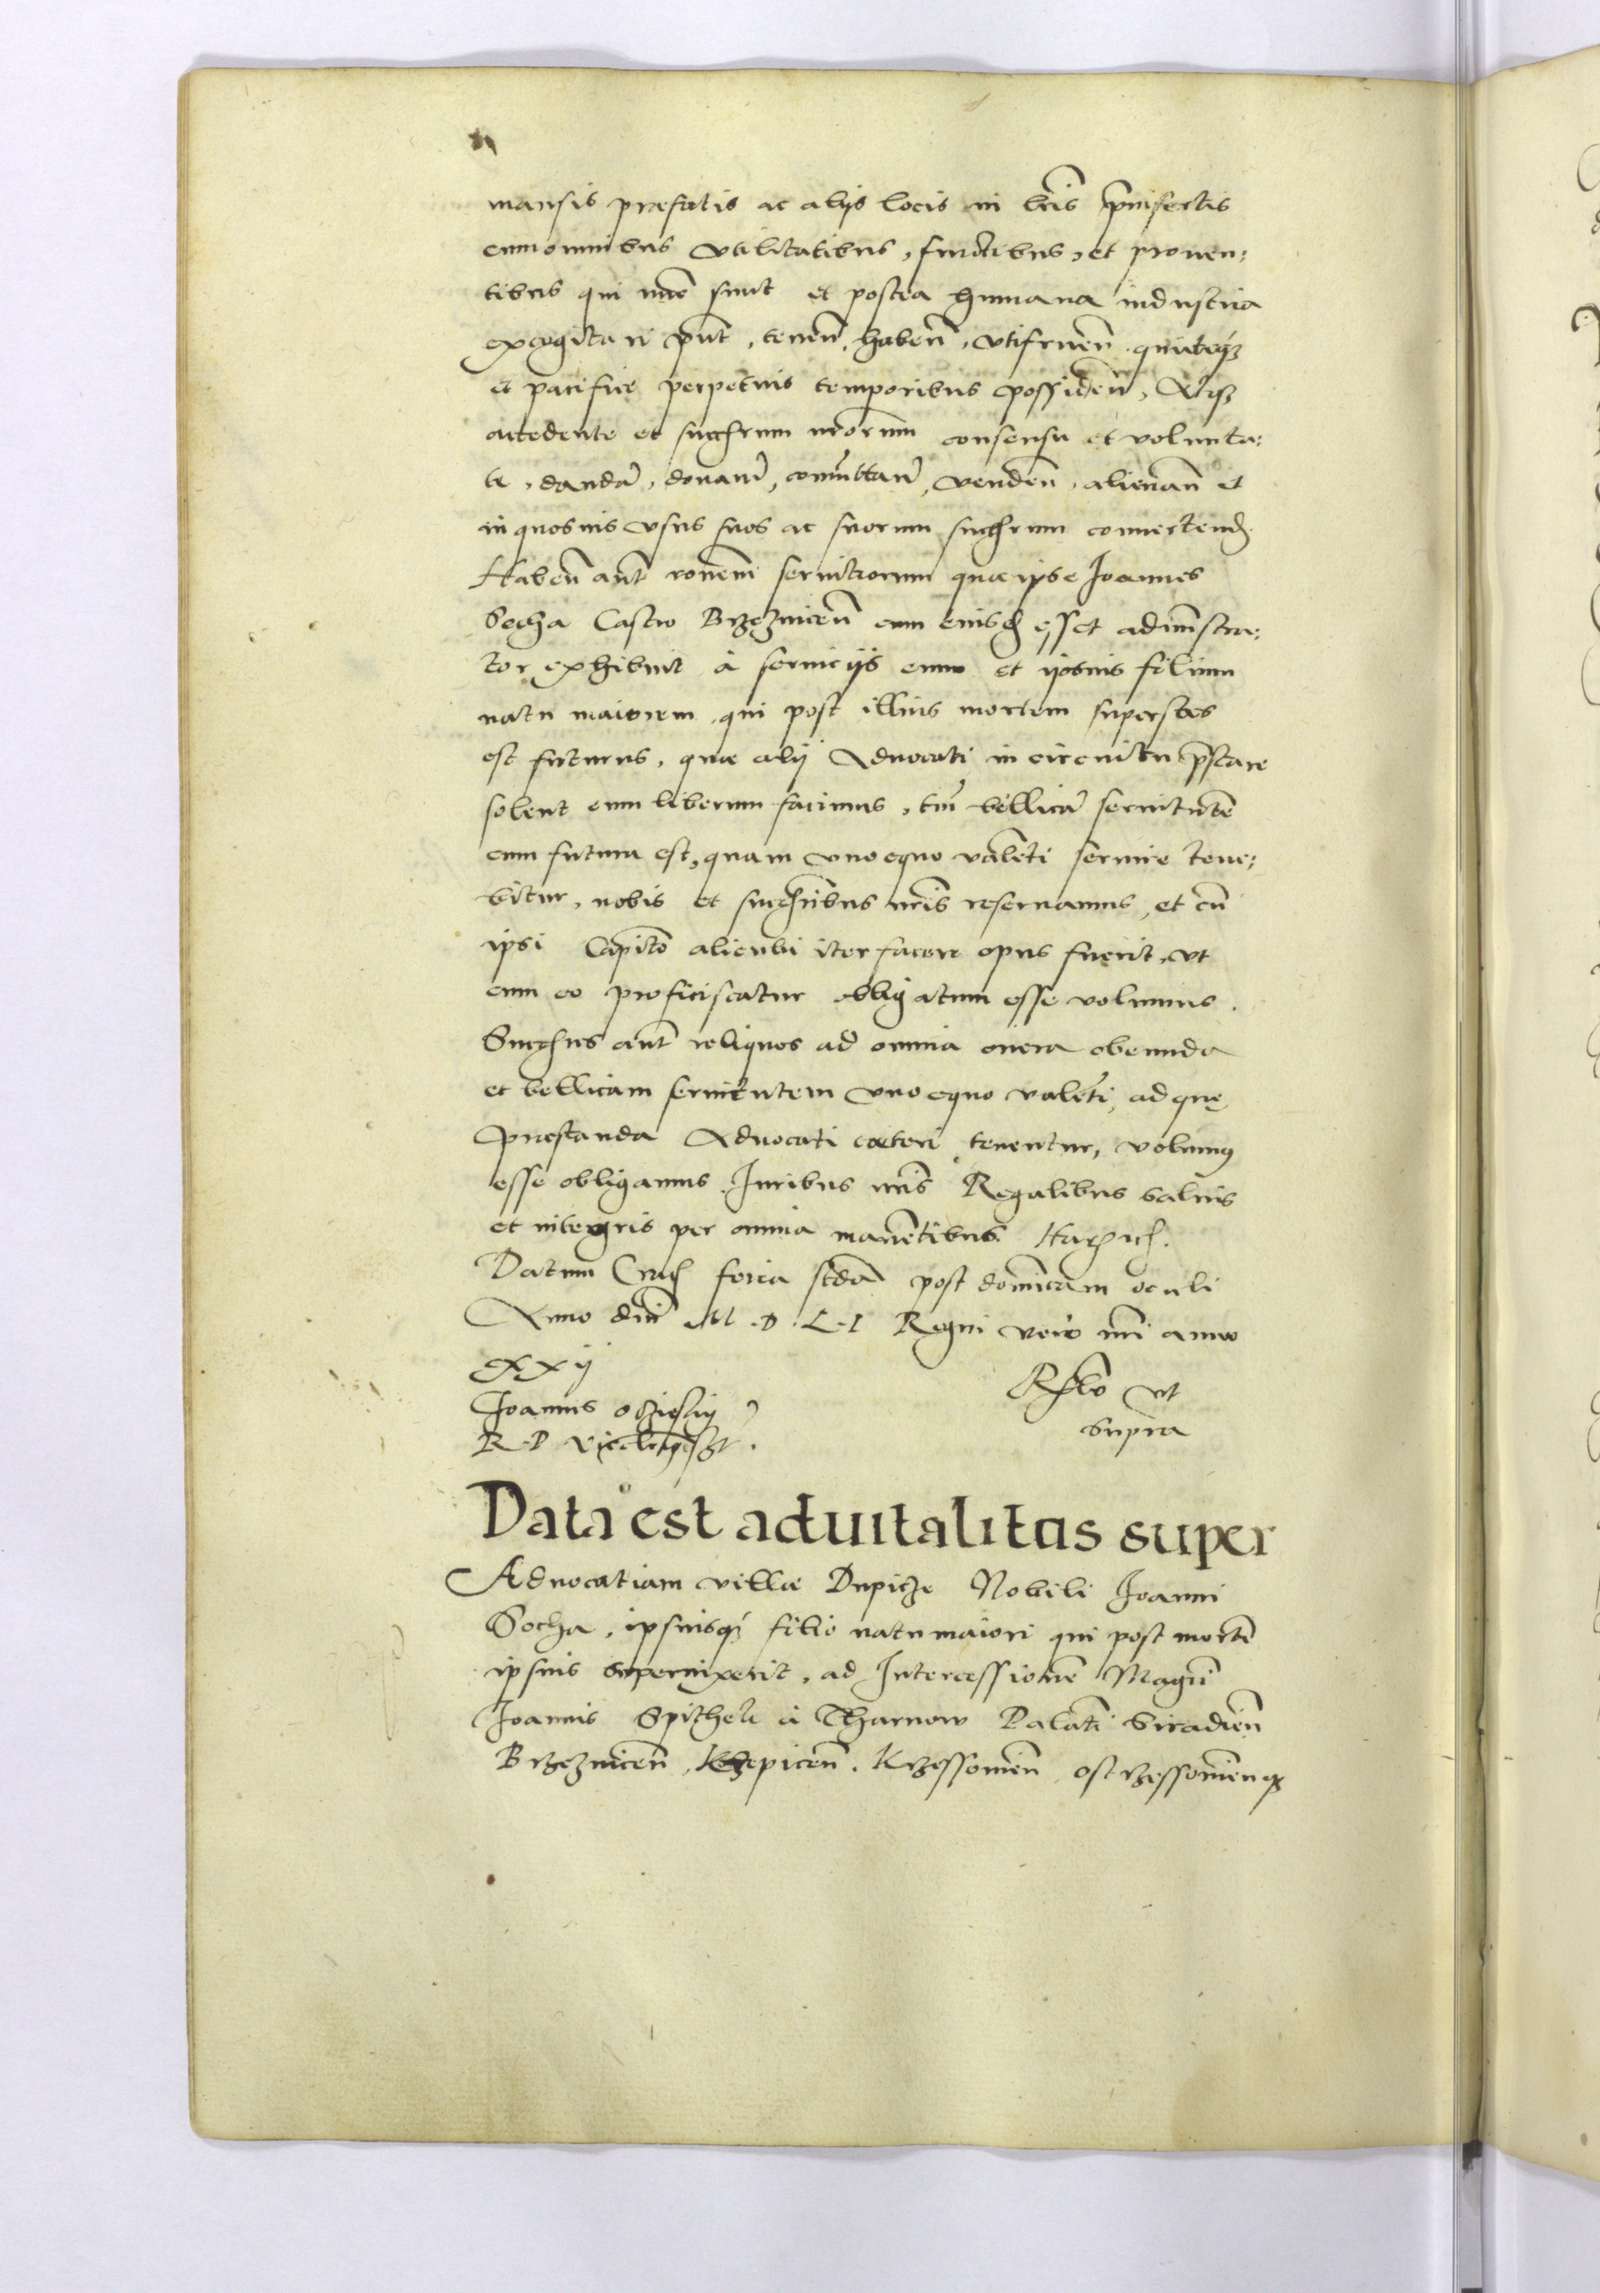 mansis præfatis ac alijs locis in lris pninsertis
cum omnibus vtilitatibus, fructibus, et prouen:
tibus qui nunc sunt et postea humana industria
excogitari pnt, tenen, haben, vtifruen, quieteq3
et pacifice perpetuis temporibus possiden, Atq3
accedente et succrum nrorum consensu et volunta:
te, dandam, donand, comuttand, venden, alienan et
in quosuis vsus suos ac suorum succrum conuertend.
Haben aut ronem seruitiorum quæ ipse Joannes
Socha Castro Brzezniceñ cum eiusd esset administra:
tor exhibuit à seruicijs eum et ipsius filium
natu maiorem, qui post illius mortem superstes
est futurus, quæ alij Aduocati in circuitu pstare
solent eum liberum facimus, tm bellica seruitute
cum futura est, quam vno equo valenti seruire tene:
bitur, nobis et succribus nris reseruamus, et cu
ipsi Capito alicubi iter facere opus fuerit, vt
cum eo proficiscatur obligatum esse volumus.
Succres aut reliquos ad omnia onera obeunda
et bellicam seruitutem vno equo valeti, ad quę
præstanda Aduocati cæteri tenentur, volumus
esse obligamus. Juribus nris Regalibus saluis
et integris per omnia manentibus. Harum
Datum Crac feria scda post dominicam oculi
Anno dni M.D.L.I Regni vero nri anno
xxij
Joannes oczieski
R.P. vicecance
Rlto vt
supra
Data est aduitalitas super
Aduocatiam villæ Dupicze Nobili Joanni
Socha, ipsiusq3 filio natu maiori qui post morte
ipsius superuixerit, ad Intercessione Magci
Joannis Spithek à Tharnow Palati Siradien
Brzeznicen, Krzepicen, Krzessouien, ostrzessouienq3